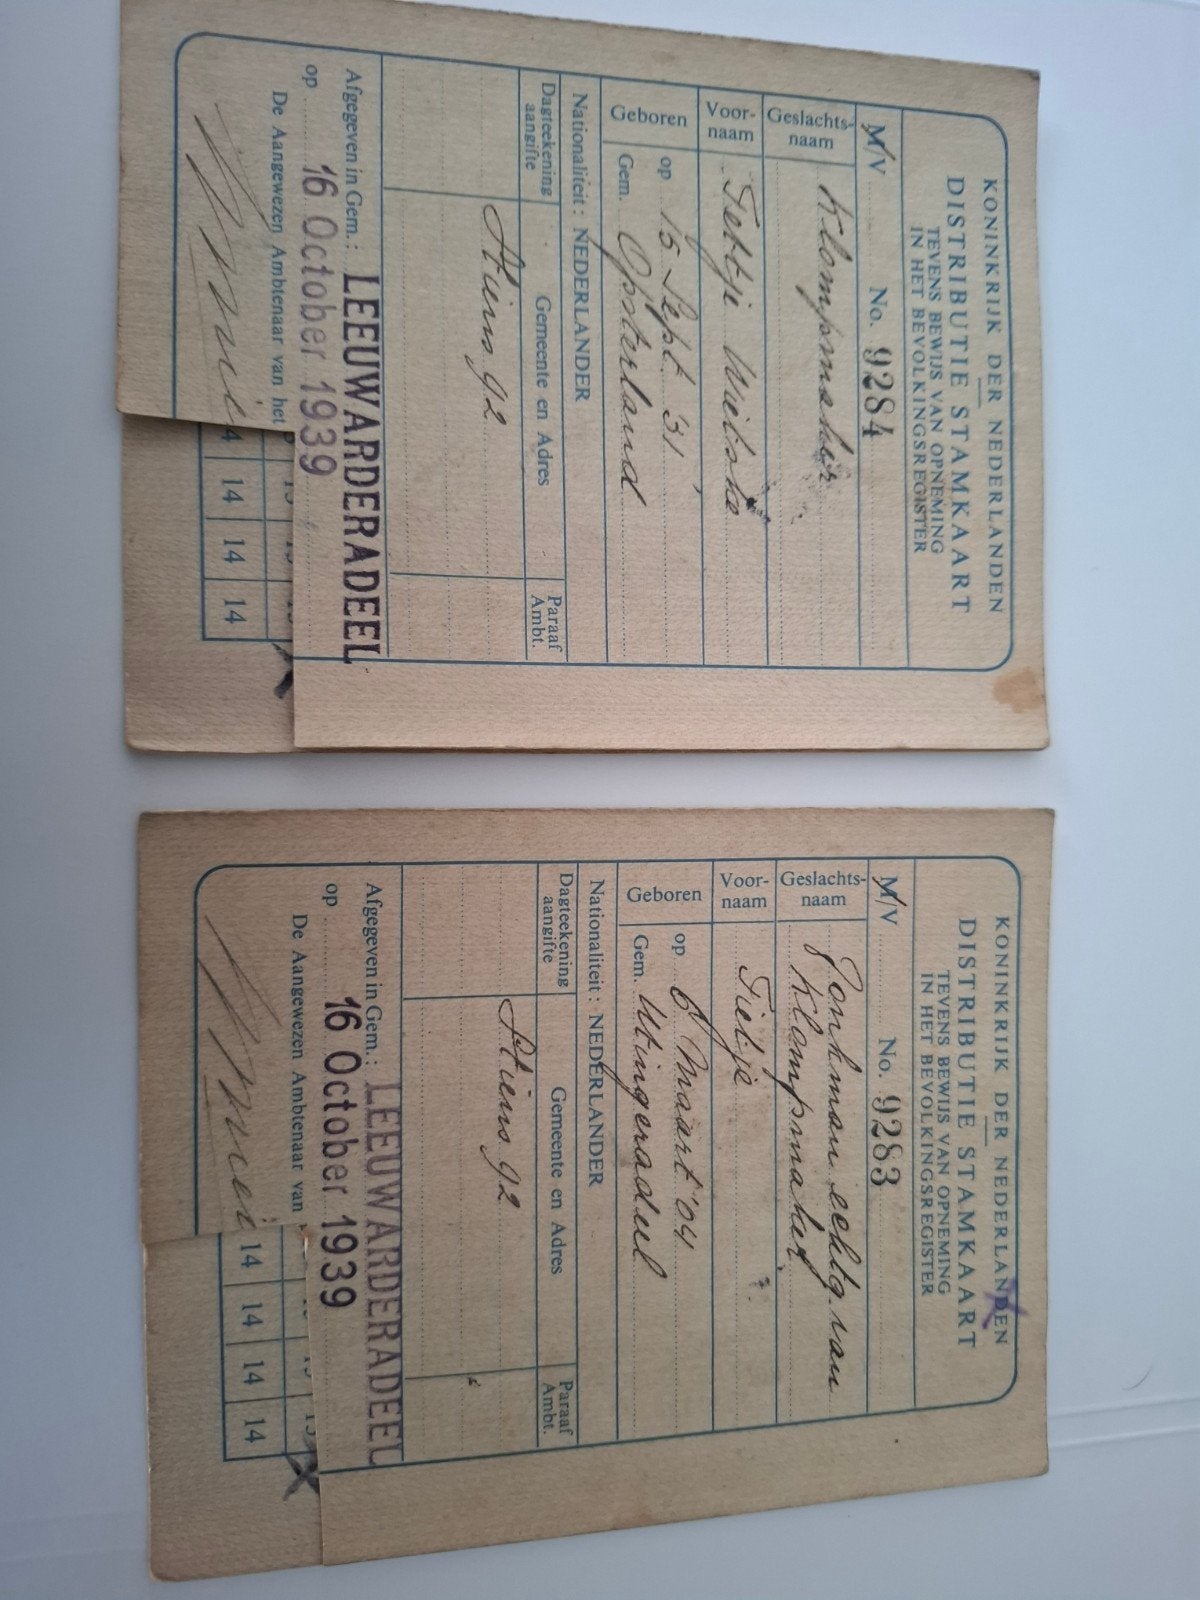 KONINKRIJK DER NEDERLANDEN
DISTRIBUTIE STAMKAART
TEVENS BEWIJS VAN OPNEMING
IN HET BEVOLKINGSREGISTER
M/V No. 9284
Geslachts-
naam
Klompmaker
Voor-
naam
Tettje Wietske
Geboren
op 15 Sept 31
Gem. Opsterland
Nationaliteit: NEDERLANDER
Dagteekening
aangifte
Gemeente en Adres
Paraaf
Ambt.
Stiens 92
Afgegeven in Gem.: LEEUWARDERADEEL
op 16 October 1939
De Aangewezen Ambtenaar van het
4 14 14 14
KONINKRIJK DER NEDERLANDEN
DISTRIBUTIE STAMKAART
TEVENS BEWIJS VAN OPNEMING
IN HET BEVOLKINGSREGISTER
M/V No. 9283
Geslachts-
naam
Jonkman echtg. van
Klompmaker
Voor-
naam
Tietje
Geboren
op 6 Maart '04
Gem. Utingeradeel
Nationaliteit: NEDERLANDER
Dagteekening
aangifte
Gemeente en Adres
Paraaf
Ambt.
Stiens 92
Afgegeven in Gem.: LEEUWARDERADEEL
op 16 October 1939
De Aangewezen Ambtenaar van
14 14 14 14